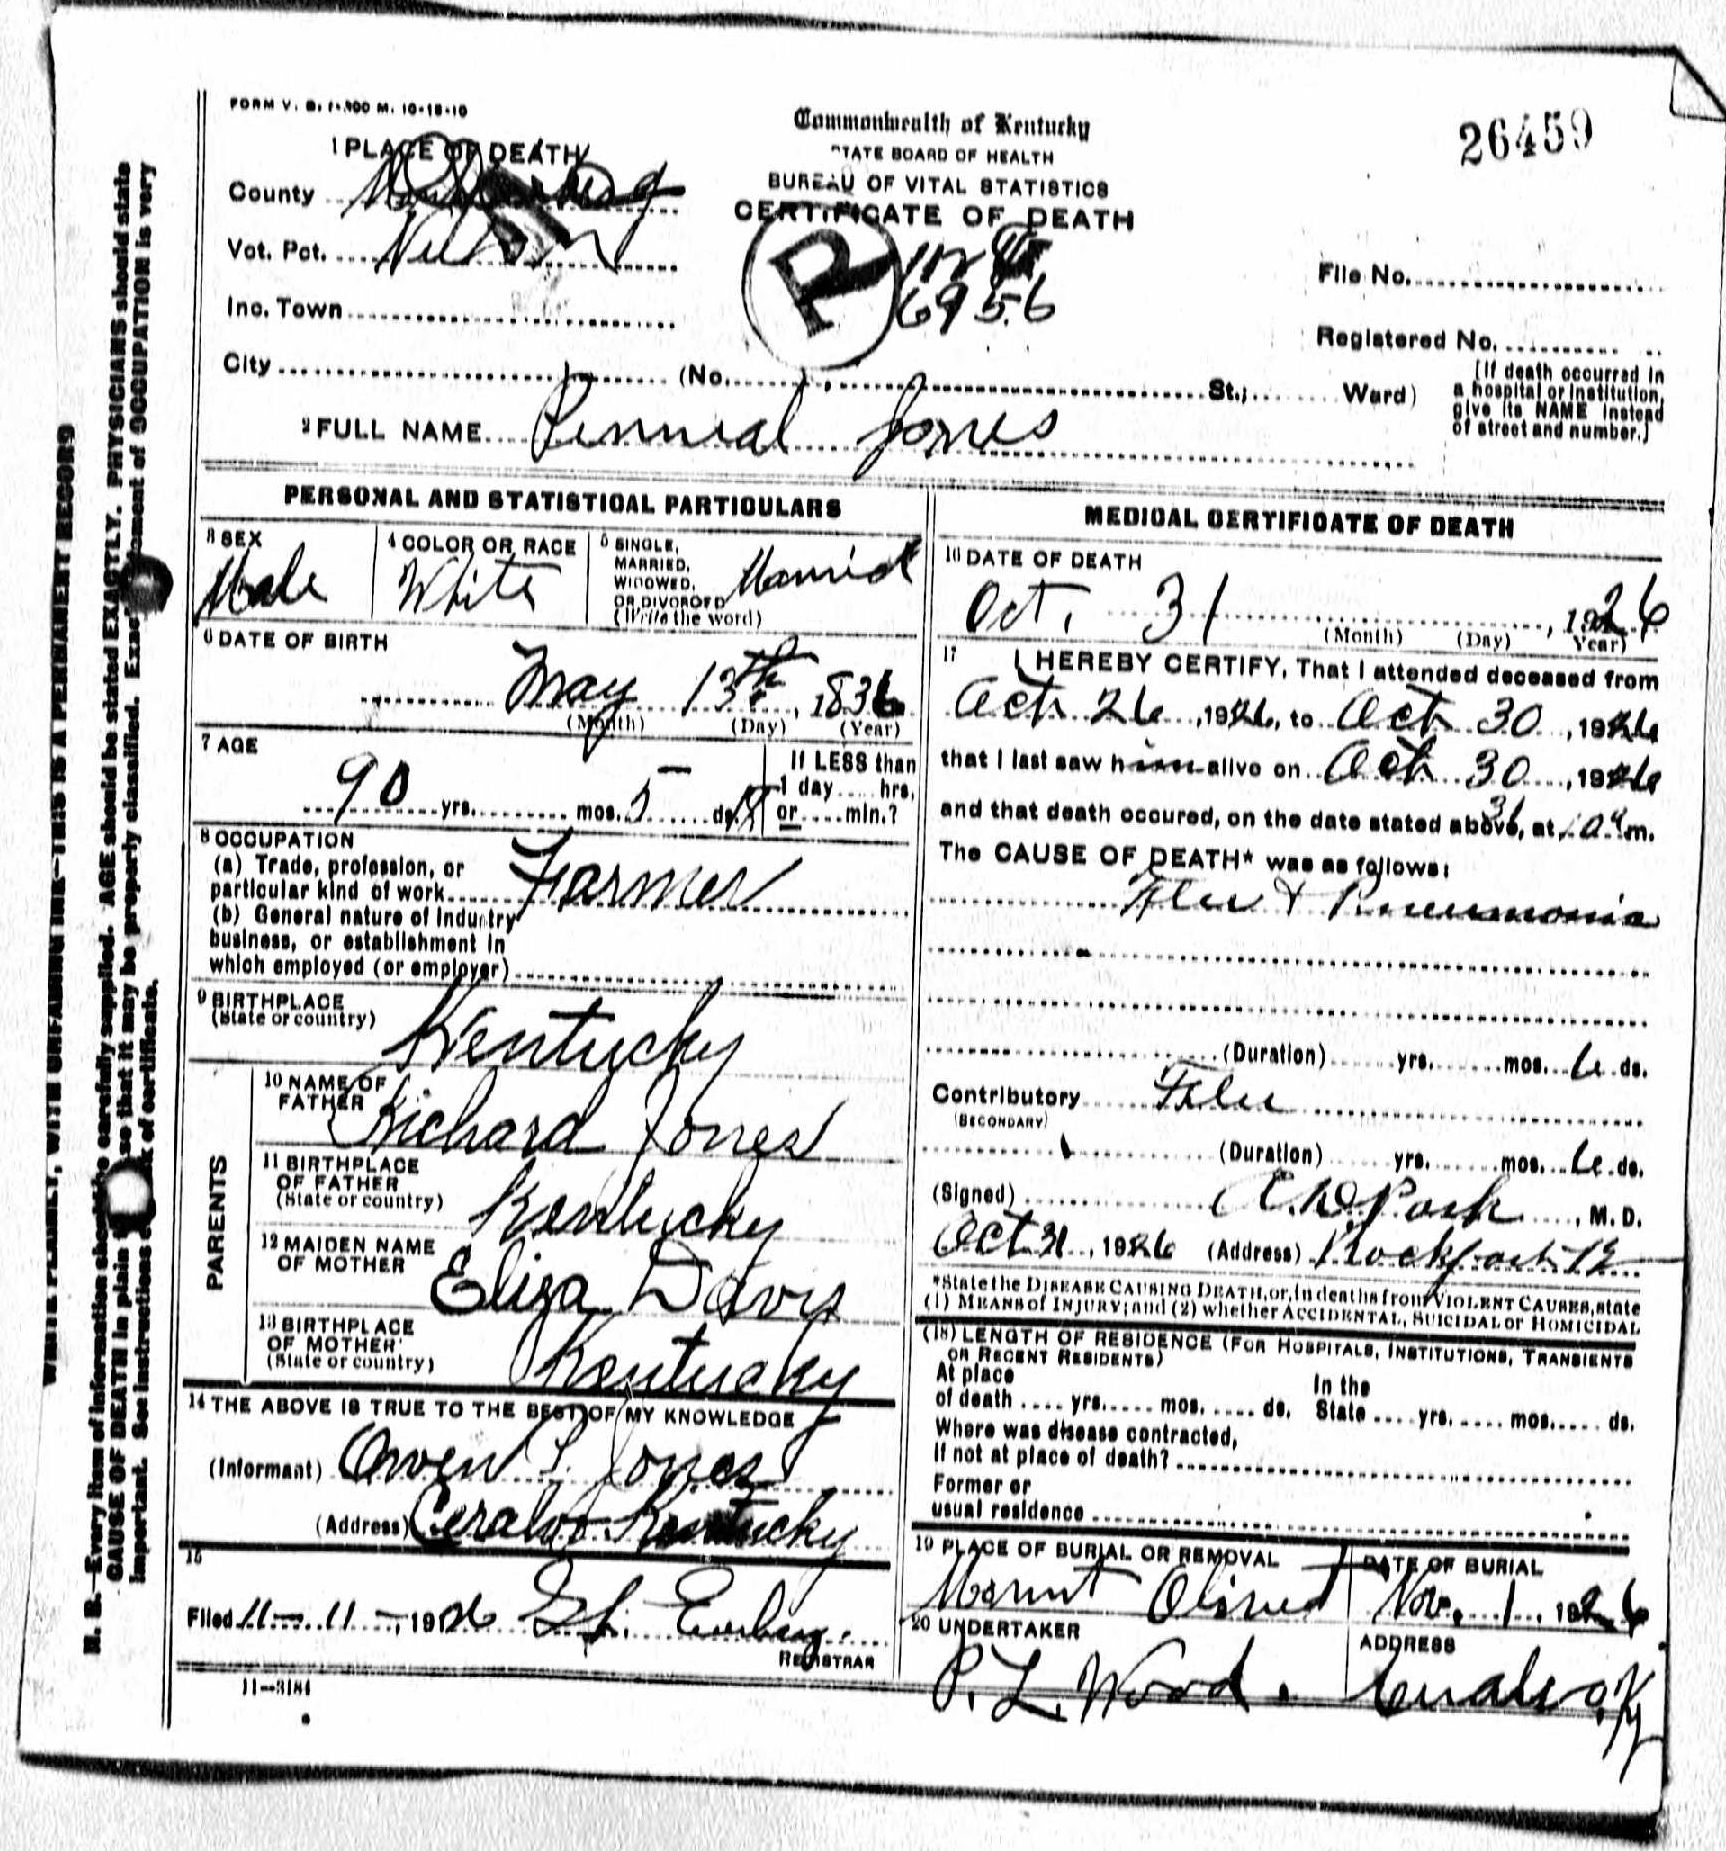 FORM V. S. 1-300 M. 10-18-10
Commonwealth of Kentucky
STATE BOARD OF HEALTH
BUREAU OF VITAL STATISTICS
CERTIFICATE OF DEATH
26459
1 PLACE OF DEATH
County
Vot. Pct.
Inc. Town
City (No. St.; Ward)
R
6956
File No.
Registered No.
(If death occurred in
a hospital or institution,
give its NAME instead
of street and number.)
2 FULL NAME Pennial Jones
PERSONAL AND STATISTICAL PARTICULARS
3 SEX
Male
4 COLOR OR RACE
White
5 SINGLE,
MARRIED,
WIDOWED,
OR DIVORCED
(Write the word)
Married
6 DATE OF BIRTH
May 13th, 1836
(Month) (Day) (Year)
7 AGE
90 yrs. mos. 5 ds. 18
If LESS than
1 day hrs,
or min.?
8 OCCUPATION
(a) Trade, profession, or
particular kind of work Farmer
(b) General nature of Industry
business, or establishment in
which employed (or employer)
9 BIRTHPLACE
(State or country)
Kentucky
PARENTS
10 NAME OF
FATHER
Richard Jones
11 BIRTHPLACE
OF FATHER
(State or country)
Kentucky
12 MAIDEN NAME
OF MOTHER
Eliza Davis
13 BIRTHPLACE
OF MOTHER
(State or country)
Kentucky
14 THE ABOVE IS TRUE TO THE BEST OF MY KNOWLEDGE
(Informant) Owen P. Jones
(Address) Ceralvo Kentucky
15
Filed 11-11-, 1926
REGISTRAR
11-3184
MEDICAL CERTIFICATE OF DEATH
16 DATE OF DEATH
Oct. 31, 1926
(Month) (Day) Year)
17 I HEREBY CERTIFY, That I attended deceased from
Oct 26, 1926, to Oct 30, 1926
that I last saw him alive on Oct 30, 1926
and that death occured, on the date stated above, at 10 a m.
31
The CAUSE OF DEATH* was as follows:
Flu + Pneumonia
(Duration) yrs. mos. 6 ds.
Contributory Flu
(SECONDARY)
(Duration) yrs. mos. 6 ds.
(Signed) , M. D.
Oct 31, 1926 (Address) Rockport Ky
*State the DISEASE CAUSING DEATH, or, in deaths from VIOLENT CAUSES, state
(1) MEANS of INJURY; and (2) whether ACCIDENTAL, SUICIDAL or HOMICIDAL
(18) LENGTH OF RESIDENCE (FOR HOSPITALS, INSTITUTIONS, TRANSIENTS
OR RECENT RESIDENTS)
At place
of death yrs. mos. ds.
In the
State yrs. mos. ds.
Where was disease contracted,
if not at place of death?
Former or
usual residence
19 PLACE OF BURIAL OR REMOVAL
Mount Olivet
DATE OF BURIAL
Nov. 1, 1926
20 UNDERTAKER
P. L. Wood.
ADDRESS
Ceralvo, Ky
WRITE PLAINLY, WITH UNFADING INK—THIS IS A PERMANENT RECORD
N. B.—Every item of information should be carefully supplied. AGE should be stated EXACTLY. PHYSICIANS should state
CAUSE OF DEATH in plain so that it may be properly classified. Exact statement of OCCUPATION is very
important. See instructions of certificate.